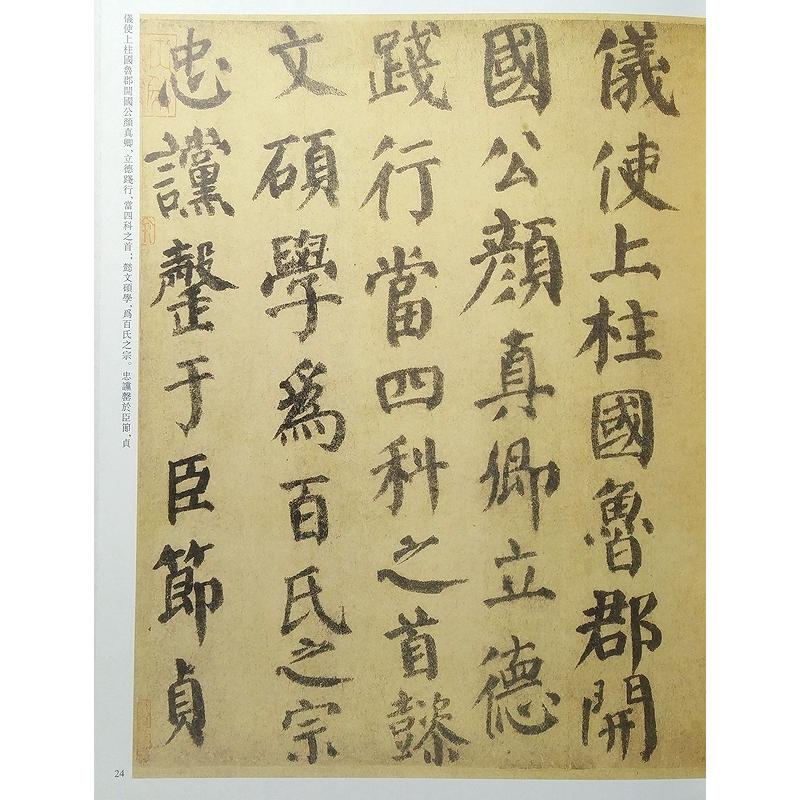 儀使上柱國魯郡開
國公顔真卿立德
踐行當四科之首懿
文碩學為百氏之宗
忠讜罄于臣節貞
儀使上柱國魯郡開國公顏真卿、立德踐行、當四科之首；懿文碩學、爲百氏之宗。忠讜罄於臣節、貞
24